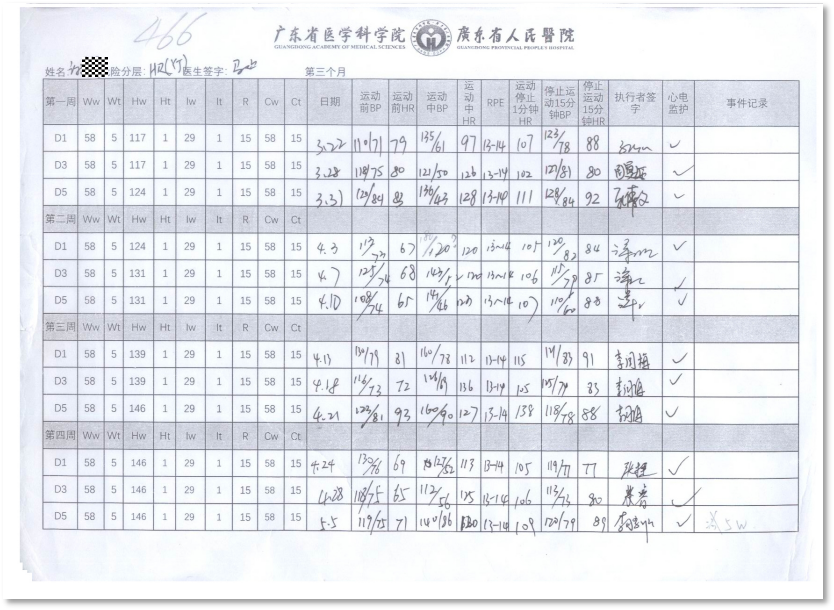 466
广东省医学科学院 广东省人民醫院
GUANGDONG ACADEMY OF MEDICAL SCIENCES GUANGDONG PROVINCIAL PEOPLE'S HOSPITAL
姓名: 险分层: 医生签字: 第三个月
第一周 Ww Wt Hw Ht Iw It R Cw Ct 日期 运动前BP 运动前HR 运动中BP 运动中HR RPE 运动停止1分钟HR 停止运动15分钟BP 停止运动15分钟HR 执行者签字 心电监护 事件记录
D1 58 5 117 1 29 1 15 58 15 3.22 110/71 79 135/61 97 13-14 107 123/78 88 ✓
D3 58 5 117 1 29 1 15 58 15 3.28 118/75 80 121/50 126 13-14 102 121/81 80 ✓
D5 58 5 124 1 29 1 15 58 15 3.31 120/84 83 136/43 128 13-14 111 128/84 92 ✓
第二周 Ww Wt Hw Ht Iw It R Cw Ct
D1 58 5 124 1 29 1 15 58 15 4.3 67 120 13-14 105 120/82 84 ✓
D3 58 5 131 1 29 1 15 58 15 4.7 125/74 68 120 13-14 106 115/78 85 ✓
D5 58 5 131 1 29 1 15 58 15 4.10 108/74 65 13-14 107 88 ✓
第三周 Ww Wt Hw Ht Iw It R Cw Ct
D1 58 5 139 1 29 1 15 58 15 4.13 130/79 81 160/78 112 13-14 115 91 ✓
D3 58 5 139 1 29 1 15 58 15 4.18 116/73 72 136 13-14 105 105/74 83 ✓
D5 58 5 146 1 29 1 15 58 15 4.21 123/81 93 160/90 127 13-14 138 118/78 88 ✓
第四周 Ww Wt Hw Ht Iw It R Cw Ct
D1 58 5 146 1 29 1 15 58 15 4.24 130/76 69 127/52 113 13-14 105 119/71 77 ✓
D3 58 5 146 1 29 1 15 58 15 4.28 118/75 65 112/56 125 13-14 106 113/73 80 ✓
D5 58 5 146 1 29 1 15 58 15 5.5 119/75 71 140/86 13-14 109 120/79 89 ✓ 5W